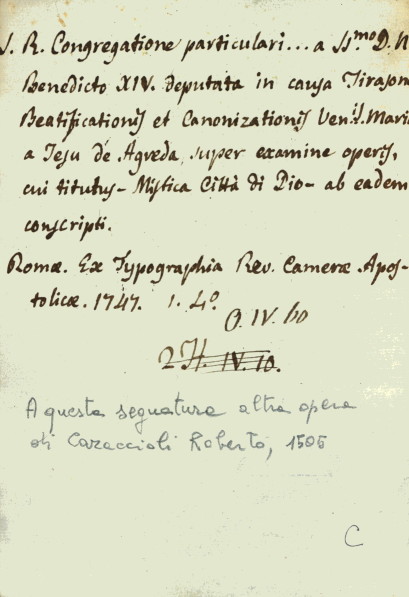 S. R. Congregatione particulari... a SS.mo D. N
Benedicto XIV. deputata in causa Tirason
Beatificationis et Canonizationis Ven.lis Mari
a Jesu de Agreda, super examine operis,
cui titulus - Mistica Città di Dio - ab eadem
conscripti.
Romæ. Ex Typographia Rev. Cameræ Apos-
tolicæ. 1747. 1. 4º
O. IV. 60
2 H. IV. 10.
A questa segnatura altra opera
di Caraccioli Roberto, 1505
C